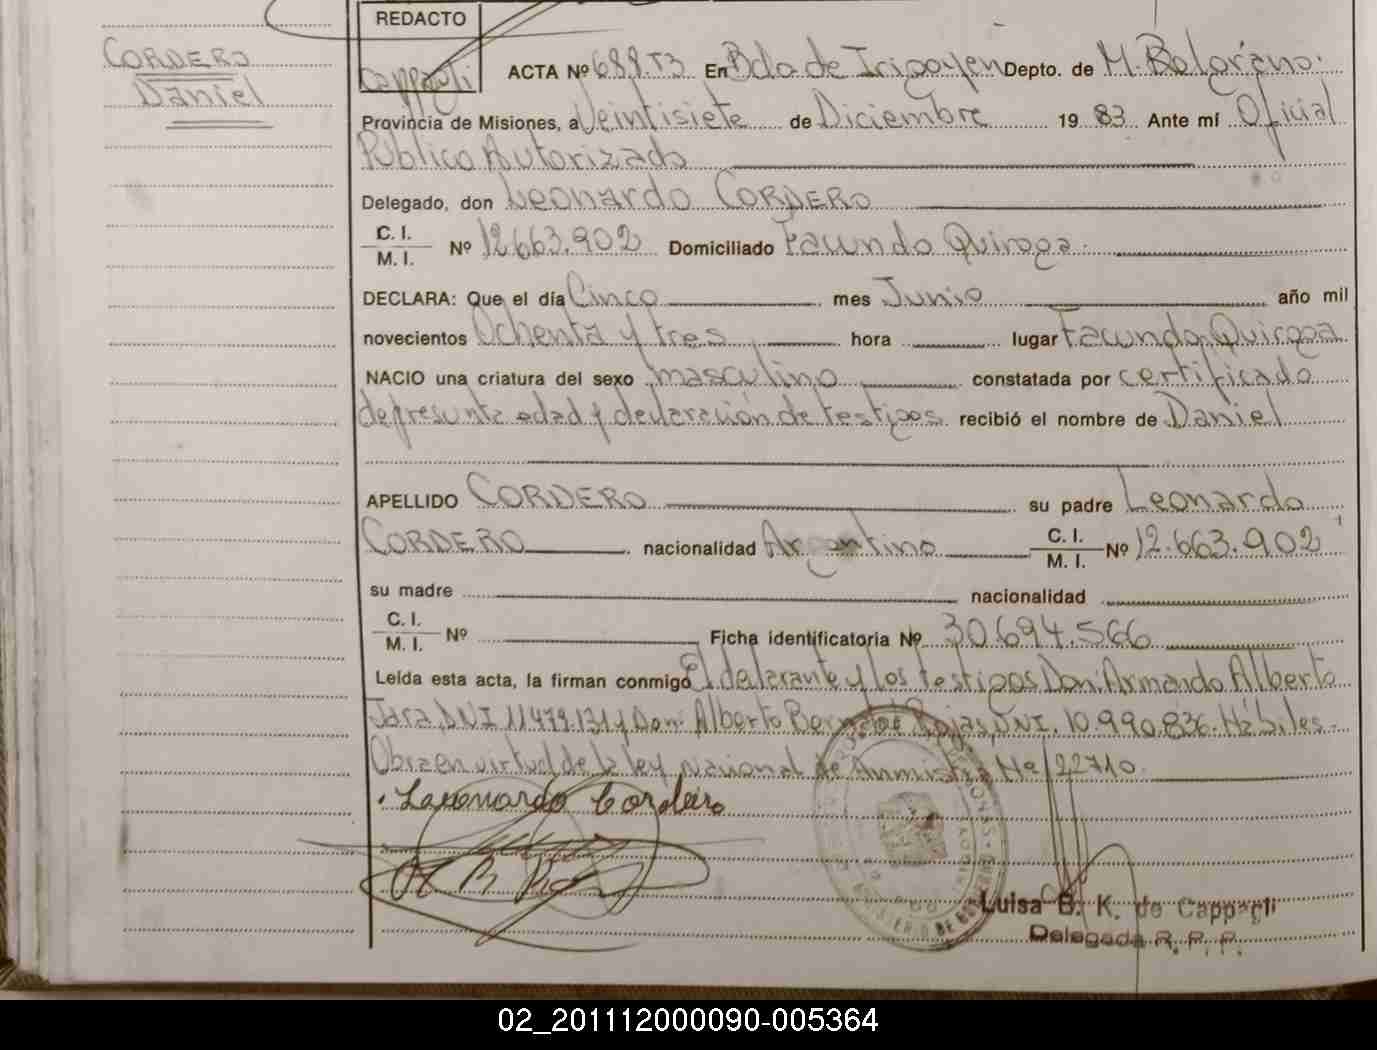 REDACTO
CORDERO
Daniel
Cappagli
ACTA Nº 688.T3 En Bdo de Irigoyen Depto. de M. Belgrano.
Provincia de Misiones, a Veintisiete de Diciembre 19 83 Ante mí Oficial
Público Autorizado
Delegado, don Leonardo CORDERO
C. I.
M. I.
Nº 12.663.902 Domiciliado Facundo Quiroga.
DECLARA: Que el día Cinco mes Junio año mil
novecientos Ochenta y tres hora lugar Facundo Quiroga
NACIO una criatura del sexo masculino constatada por certificado
de presunta edad y declaración de testigos recibió el nombre de Daniel
APELLIDO CORDERO su padre Leonardo
CORDERO nacionalidad Argentino C. I. M. I. Nº 12.663.902
su madre nacionalidad
C. I.
M. I.
Nº Ficha identificatoria Nº 30.694.566
Leída esta acta, la firman conmigo El declarante y los testigos Don. Armando Alberto
Jara, DNI 11.479.131 y Don. Alberto Rojas, DNI. 10.990.836. Hábiles.-
Obra en virtud de la ley Nacional de Anmistía Nº 22710.
Leonardo Cordero
Luisa B. K. de Cappagli
Delegada R. P. P.
02_201112000090-005364